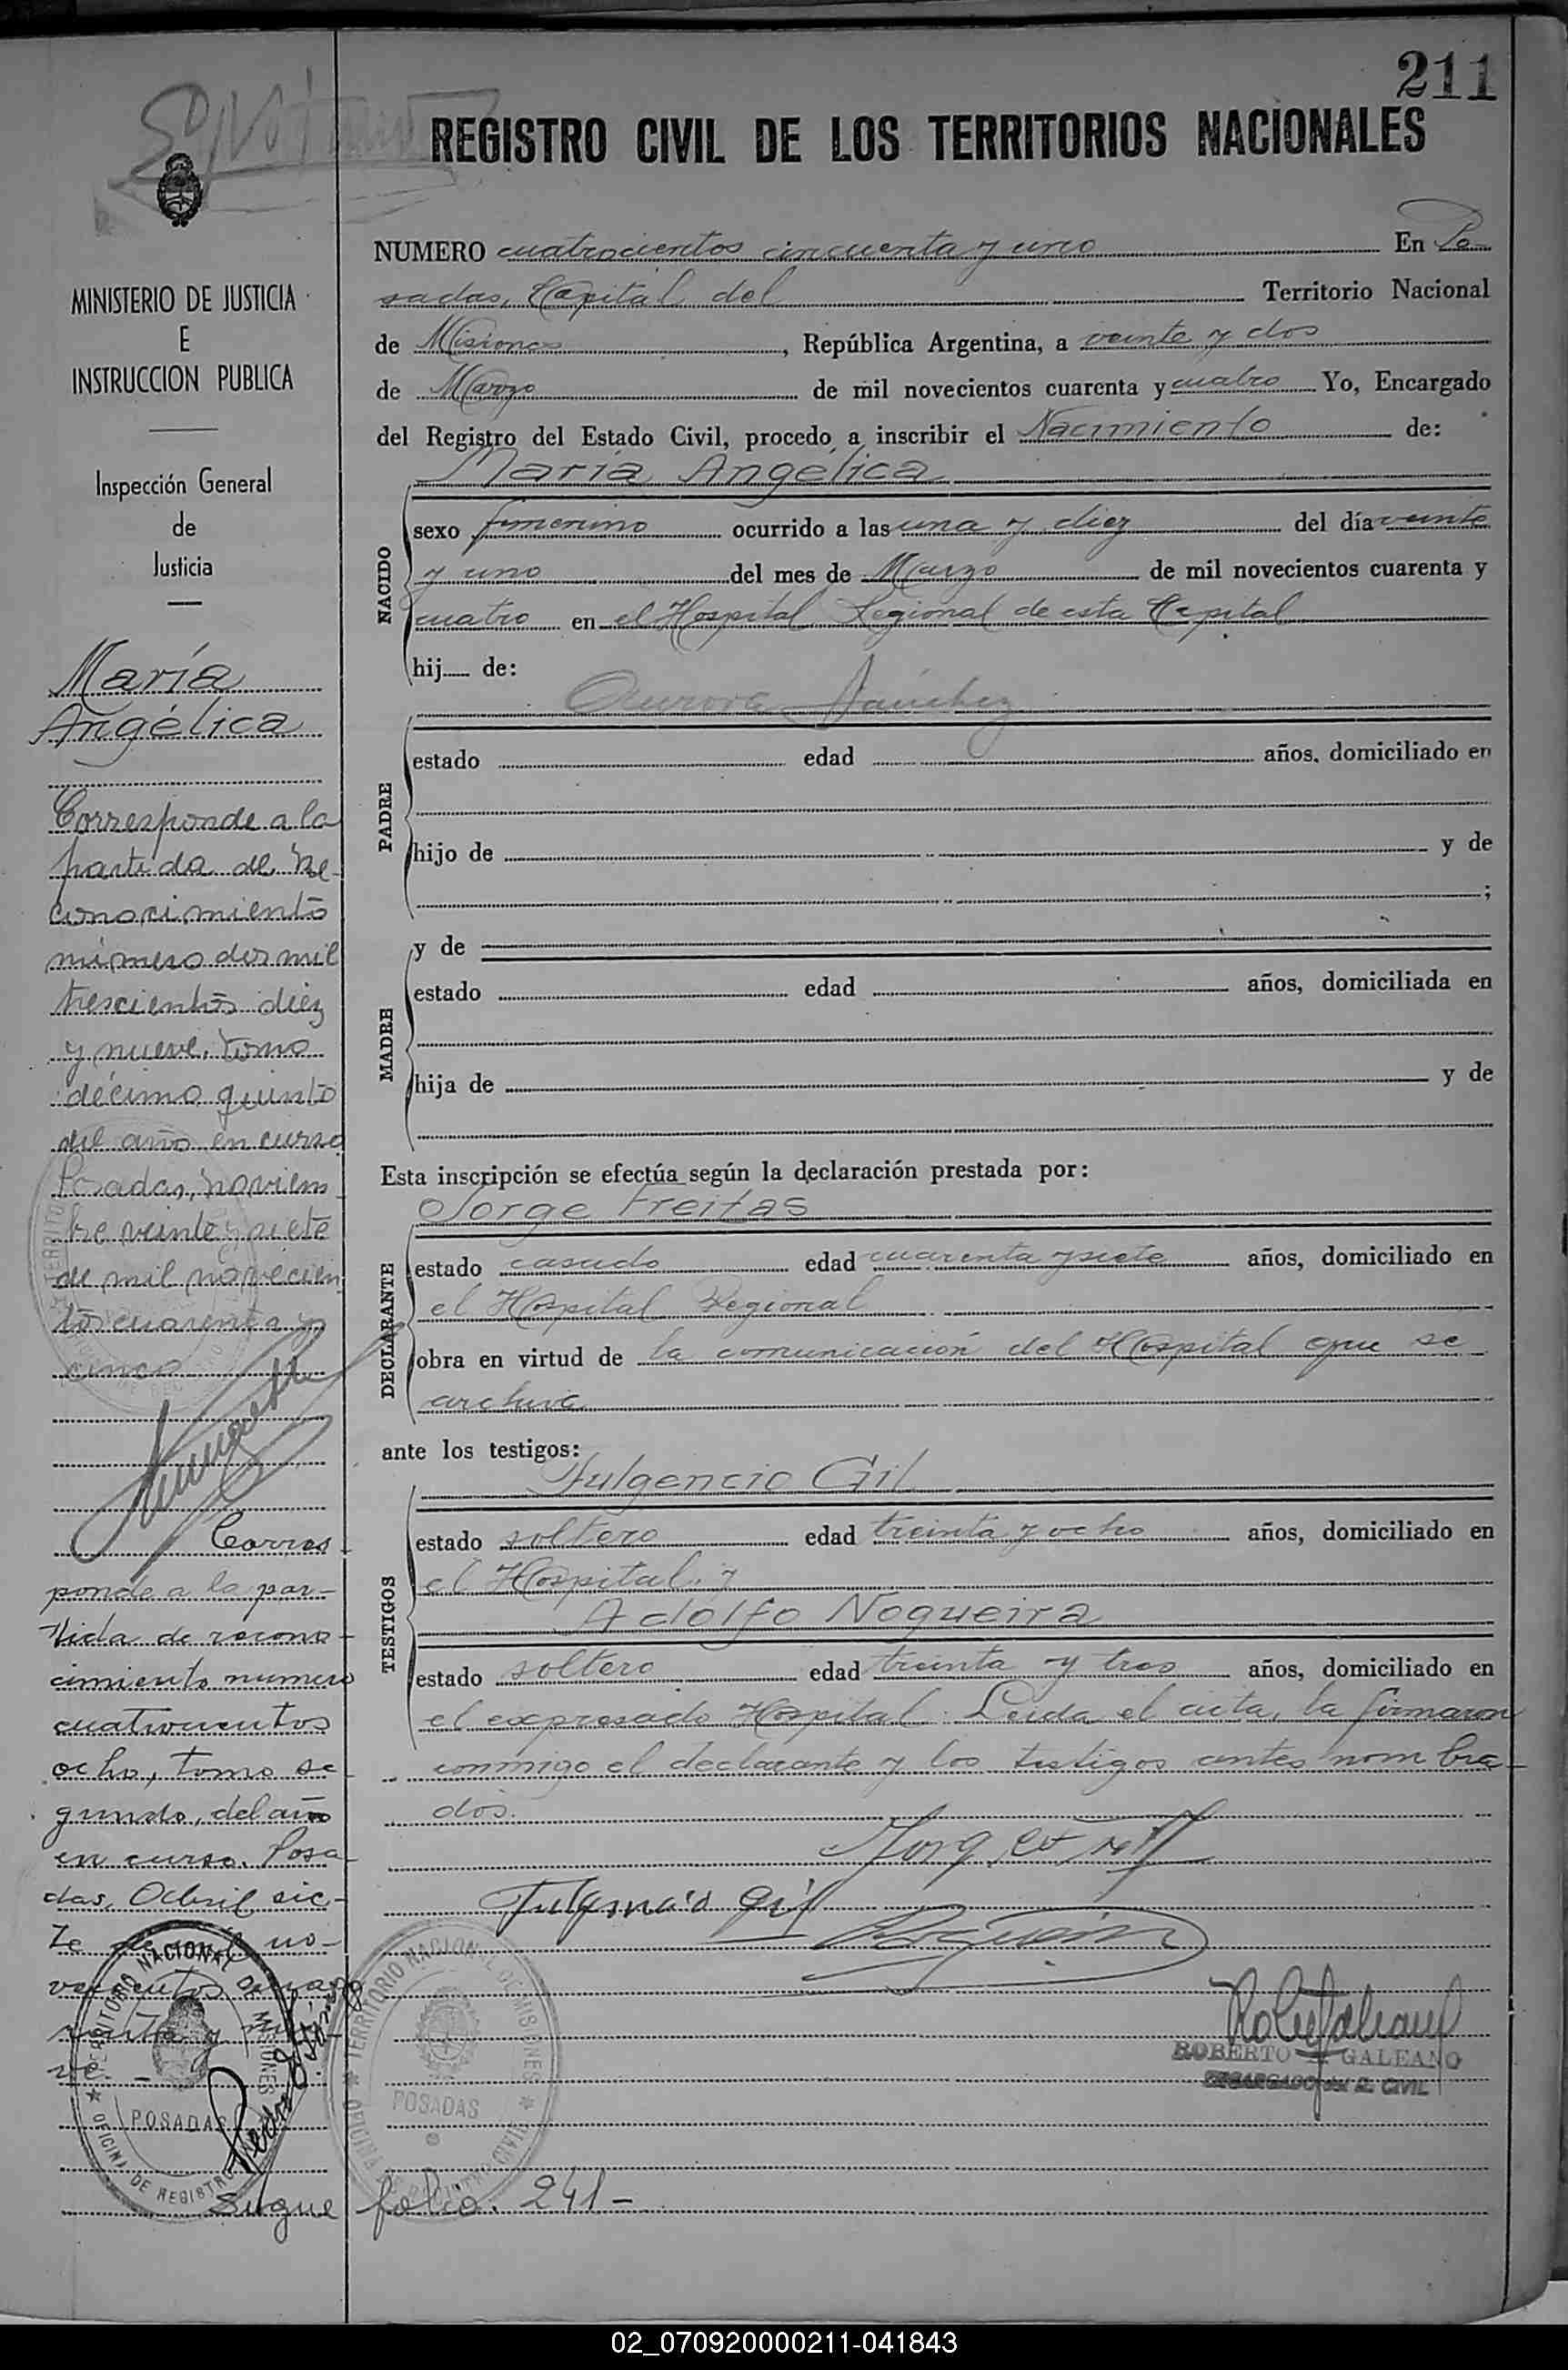 211
REGISTRO CIVIL DE LOS TERRITORIOS NACIONALES
NUMERO cuatrocientos cincuenta y uno En Po-
sadas, Capital del Territorio Nacional
de Misiones, República Argentina, a veinte y dos
de Marzo de mil novecientos cuarenta y cuatro Yo, Encargado
del Registro del Estado Civil, procedo a inscribir el Nacimiento de:
María Angélica
NACIDO
sexo femenino ocurrido a las una y diez del día veinte
y uno del mes de Marzo de mil novecientos cuarenta y
cuatro en el Hospital Regional de esta Capital
hij de:
Aurora Sánchez
PADRE
estado edad años, domiciliado en
hijo de y de
;
MADRE
y de
estado edad años, domiciliada en
hija de y de
Esta inscripción se efectúa según la declaración prestada por:
Jorge Freitas
DECLARANTE
estado casado edad cuarenta y siete años, domiciliado en
el Hospital Regional
obra en virtud de la comunicación del Hospital que se
archiva
ante los testigos:
Fulgencio Gil
TESTIGOS
estado soltero edad treinta y ocho años, domiciliado en
el Hospital y
Adolfo Nogueira
estado soltero edad treinta y tres años, domiciliado en
el expresado Hospital. Leida el acta, la firmaron
conmigo el declarante y los testigos antes nombra-
dos.
Fulgencio Gil
ROBERTO GALEANO
ENCARGADO del R. CIVIL
TERRITORIO NACIONAL DE MISIONES
POSADAS
OFICINA DE REGISTRO CIVIL
MINISTERIO DE JUSTICIA
E
INSTRUCCION PUBLICA
Inspección General
de
Justicia
María
Angélica
Corresponde a la
partida de re-
conocimiento
número dos mil
trescientos diez
y nueve, tomo
décimo quinto
del año en curso
Posadas, noviem-
bre veinte y siete
de mil novecien
tos cuarenta y
cinco
Corres-
ponde a la par-
tida de recono-
cimiento numero
cuatrocientos
ocho, tomo se-
gundo, del año
en curso. Posa-
das, Abril sie-
te de mil no-
vecientos cua-
renta y nue-
ve. -
TERRITORIO NACIONAL DE MISIONES
POSADAS
OFICINA DE REGISTRO
Sigue folio. 241 -
02_070920000211-041843